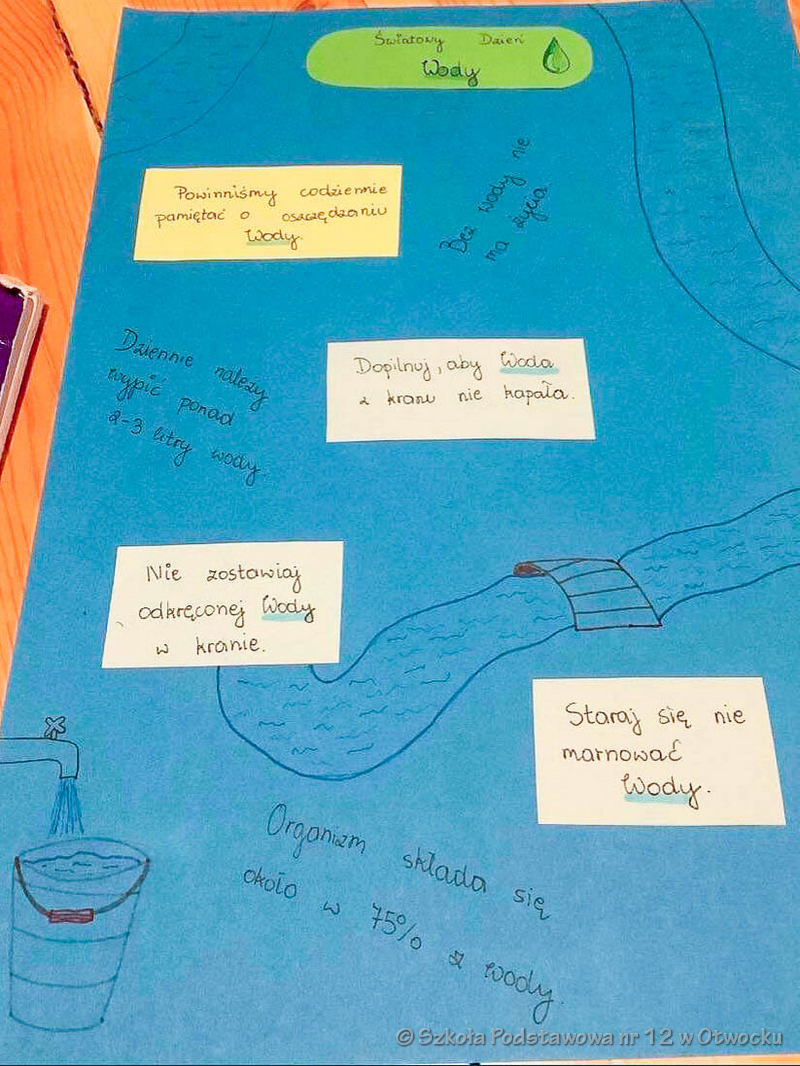 Światowy Dzień
Wody
Powinniśmy codziennie
pamiętać o oszczędzaniu
Wody.
Bez wody nie
ma życia
Dziennie należy
wypić ponad
2-3 litry wody.
Dopilnuj, aby Woda
z kranu nie kapała.
Nie zostawiaj
odkręconej Wody
w kranie.
Staraj się nie
marnować
Wody.
Organizm składa się
około w 75% z wody.
© Szkoła Podstawowa nr 12 w Otwocku